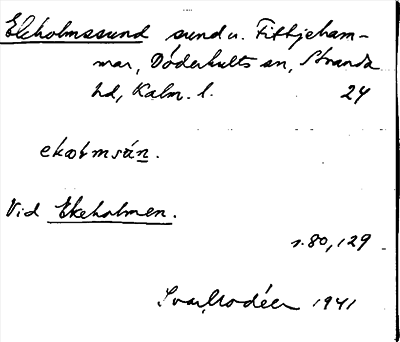 Ekholmssund sund u. Fittjeham-
mar, Döderhults sn, Stranda
hd, Kalm. l. 24
ekɷlmsún.
Vid Ekeholmen.
s. 80, 129
Ivar Modéer 1941